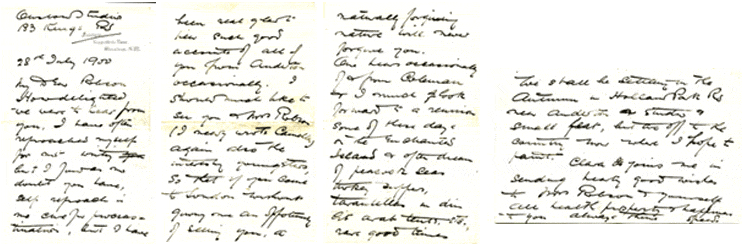 133 Kings Rd
28th July 1900
My Dear Robson
How delighted
we were to hear from
you, I have often
reproached myself
for not
but I
doubt you have,
self reproach is
no cure for procras-
tination, but I have
been real glad to
hear such good
accounts of all of
you from Anderson
occasionally. I
should much like to
see you & Mrs Robson
again also the
youngsters,
so that if you come
to London without
giving me an opportunity
of seeing you, a
naturally forgiving
nature will never
forgive you.
One hears occasionally
of & from Coleman
& I much look
forward to a reunion
some of these days
on the Enchanted
Island & often dream
of peacock seas
turkey suppers,
in dim
tents, etc,
rare good times
We shall be settling in the
Autumn in Holland Park Rd
near Anderson a studio &
small flat, but I'm off to the
country now where I hope to
paint. Clara joins me in
sending hearty good wishes
to Mrs Robson & yourself
all health prosperity & happiness
to you always